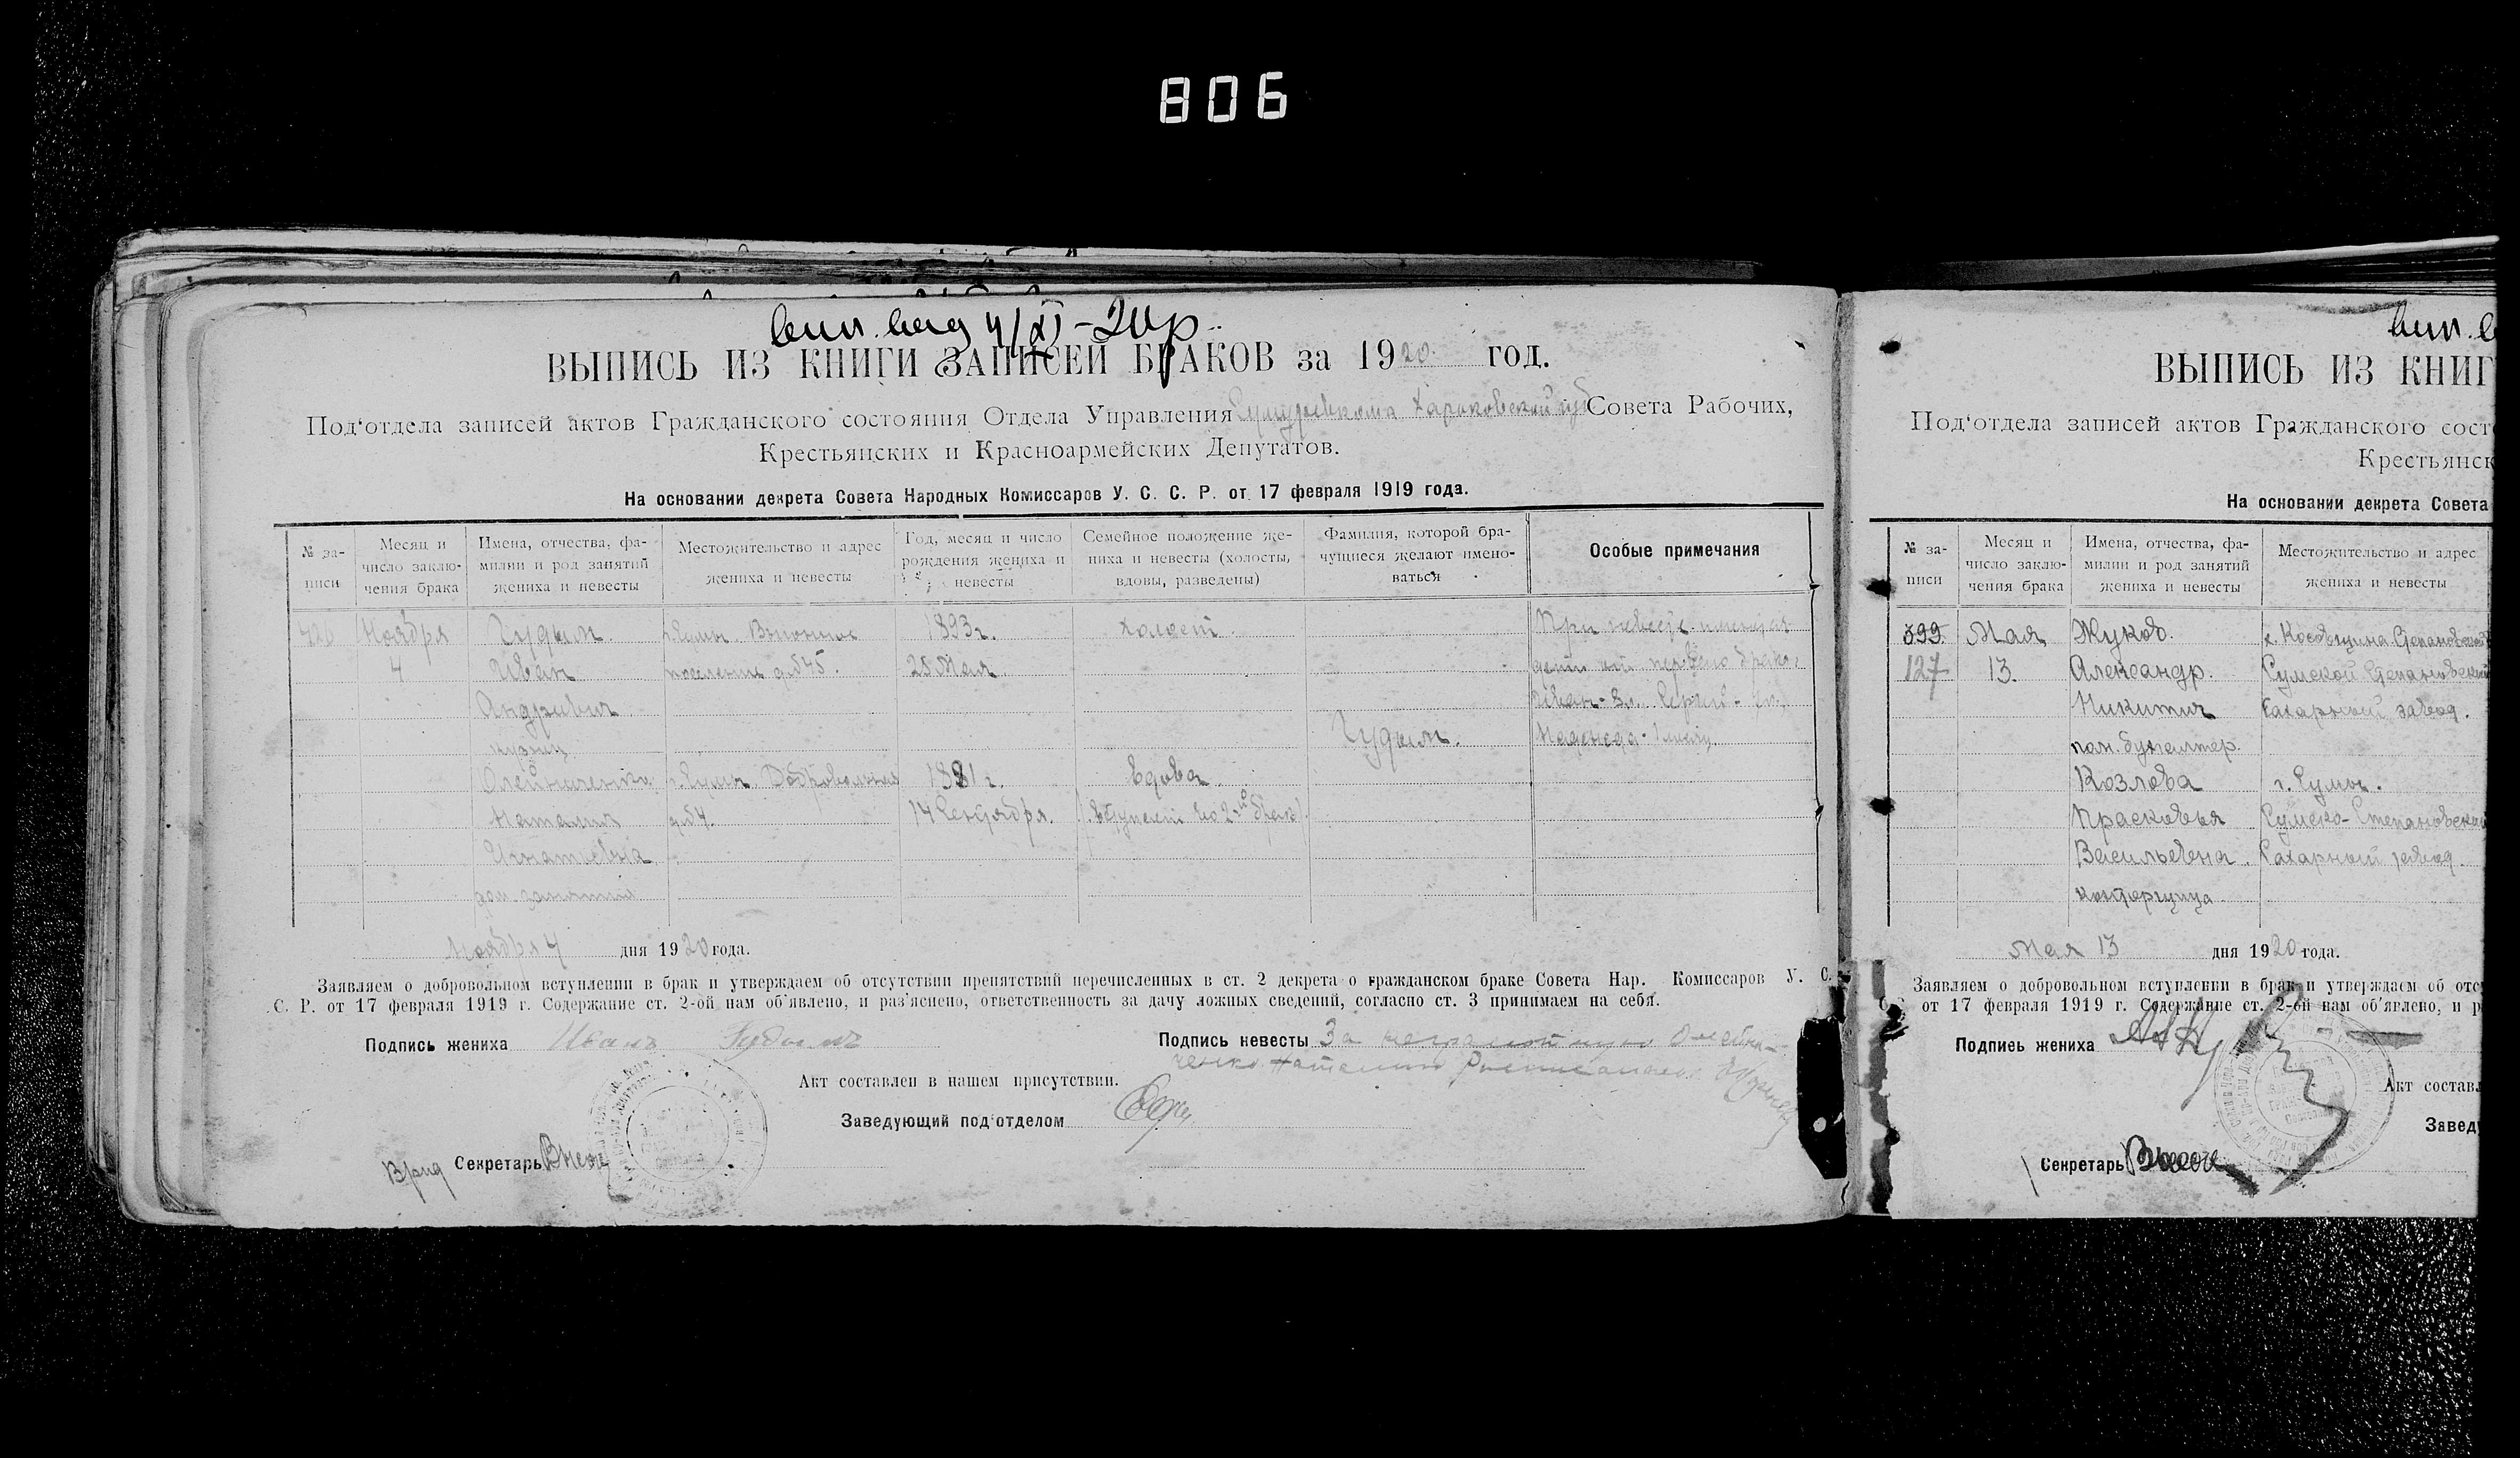 806
вип. вид 4/XI-20р.
ВЫПИСЬ ИЗ КНИГИ ЗАПИСЕЙ БРАКОВ за 1920 год.
Под‘отдела записей актов Гражданского состояния Отдела Управления Сумуревкома Харьковской губ Совета Рабочих,
Крестьянских и Красноармейских Депутатов.
На основании декрета Совета Народных Комиссаров У. С. С. Р. от 17 февраля 1919 года.
№ за-
писи
Месяц и
число заклю-
чения брака
Имена, отчества, фа-
милии и род занятий
жениха и невесты
Местожительство и адрес
жениха и невесты
Год, месяц и число
рождения жениха и
невесты
Семейное положение же-
ниха и невесты (холосты,
вдовы, разведены)
Фамилия, которой бра-
чущиеся желают имено-
ваться
Особые примечания
Ноября
4
Гудым
Иван
Андреевич
кузнец
г. Сумы
поселение д. №45.
1893 г.
25 Мая
холост
Гудым.
При невесте имеются
дети от первого брака:
Иван - 3 л., Сергей -
Надежда -
Олейниченко
Наталия
Игнатьевна
дом. занятия
г. Сумы Добровольная
д. №4.
1881 г.
14 Сентября.
вдова
(вступает во 2-й брак)
Ноября 4 дня 1920 года.
Заявляем о добровольном вступлении в брак и утверждаем об отсутствии препятствий перечисленных в ст. 2 декрета о гражданском браке Совета Нар. Комиссаров У. С.
С. Р. от 17 февраля 1919 г. Содержание ст. 2-ой нам об‘явлено, и раз‘яснено, ответственность за дачу ложных сведений, согласно ст. 3 принимаем на себя.
Подпись жениха Иванъ Гудымъ
Подпись невесты За неграмотную Олейни-
ченко Наталию Расписался
Акт составлен в нашем присутствии.
Заведующий под‘отделом
Врид Секретарь
вип. в
ВЫПИСЬ ИЗ КНИГ
Под‘отдела записей актов Гражданского сост
Крестьянск
На основании декрета Совета
№ за-
писи
Месяц и
число заклю-
чения брака
Имена, отчества, фа-
милии и род занятий
жениха и невесты
Местожительство и адрес
жениха и невесты
399
127
Мая
13.
Жуков.
Александр.
Никитич
пом. бухгалтер.
с. Косовщина Степановской
Сумской Степановский
Сахарный завод.
Козлова
Прасковья
Васильевна.
конторщица
г. Сумы.
Сумско-Степановский
Сахарный завод.
Мая 13 дня 1920 года.
Заявляем о добровольном вступлении в брак и утверждаем об отс
от 17 февраля 1919 г. Содержание ст. 2-ой нам об‘явлено, и р
Подпись жениха
Акт составл
Завед
Секретарь